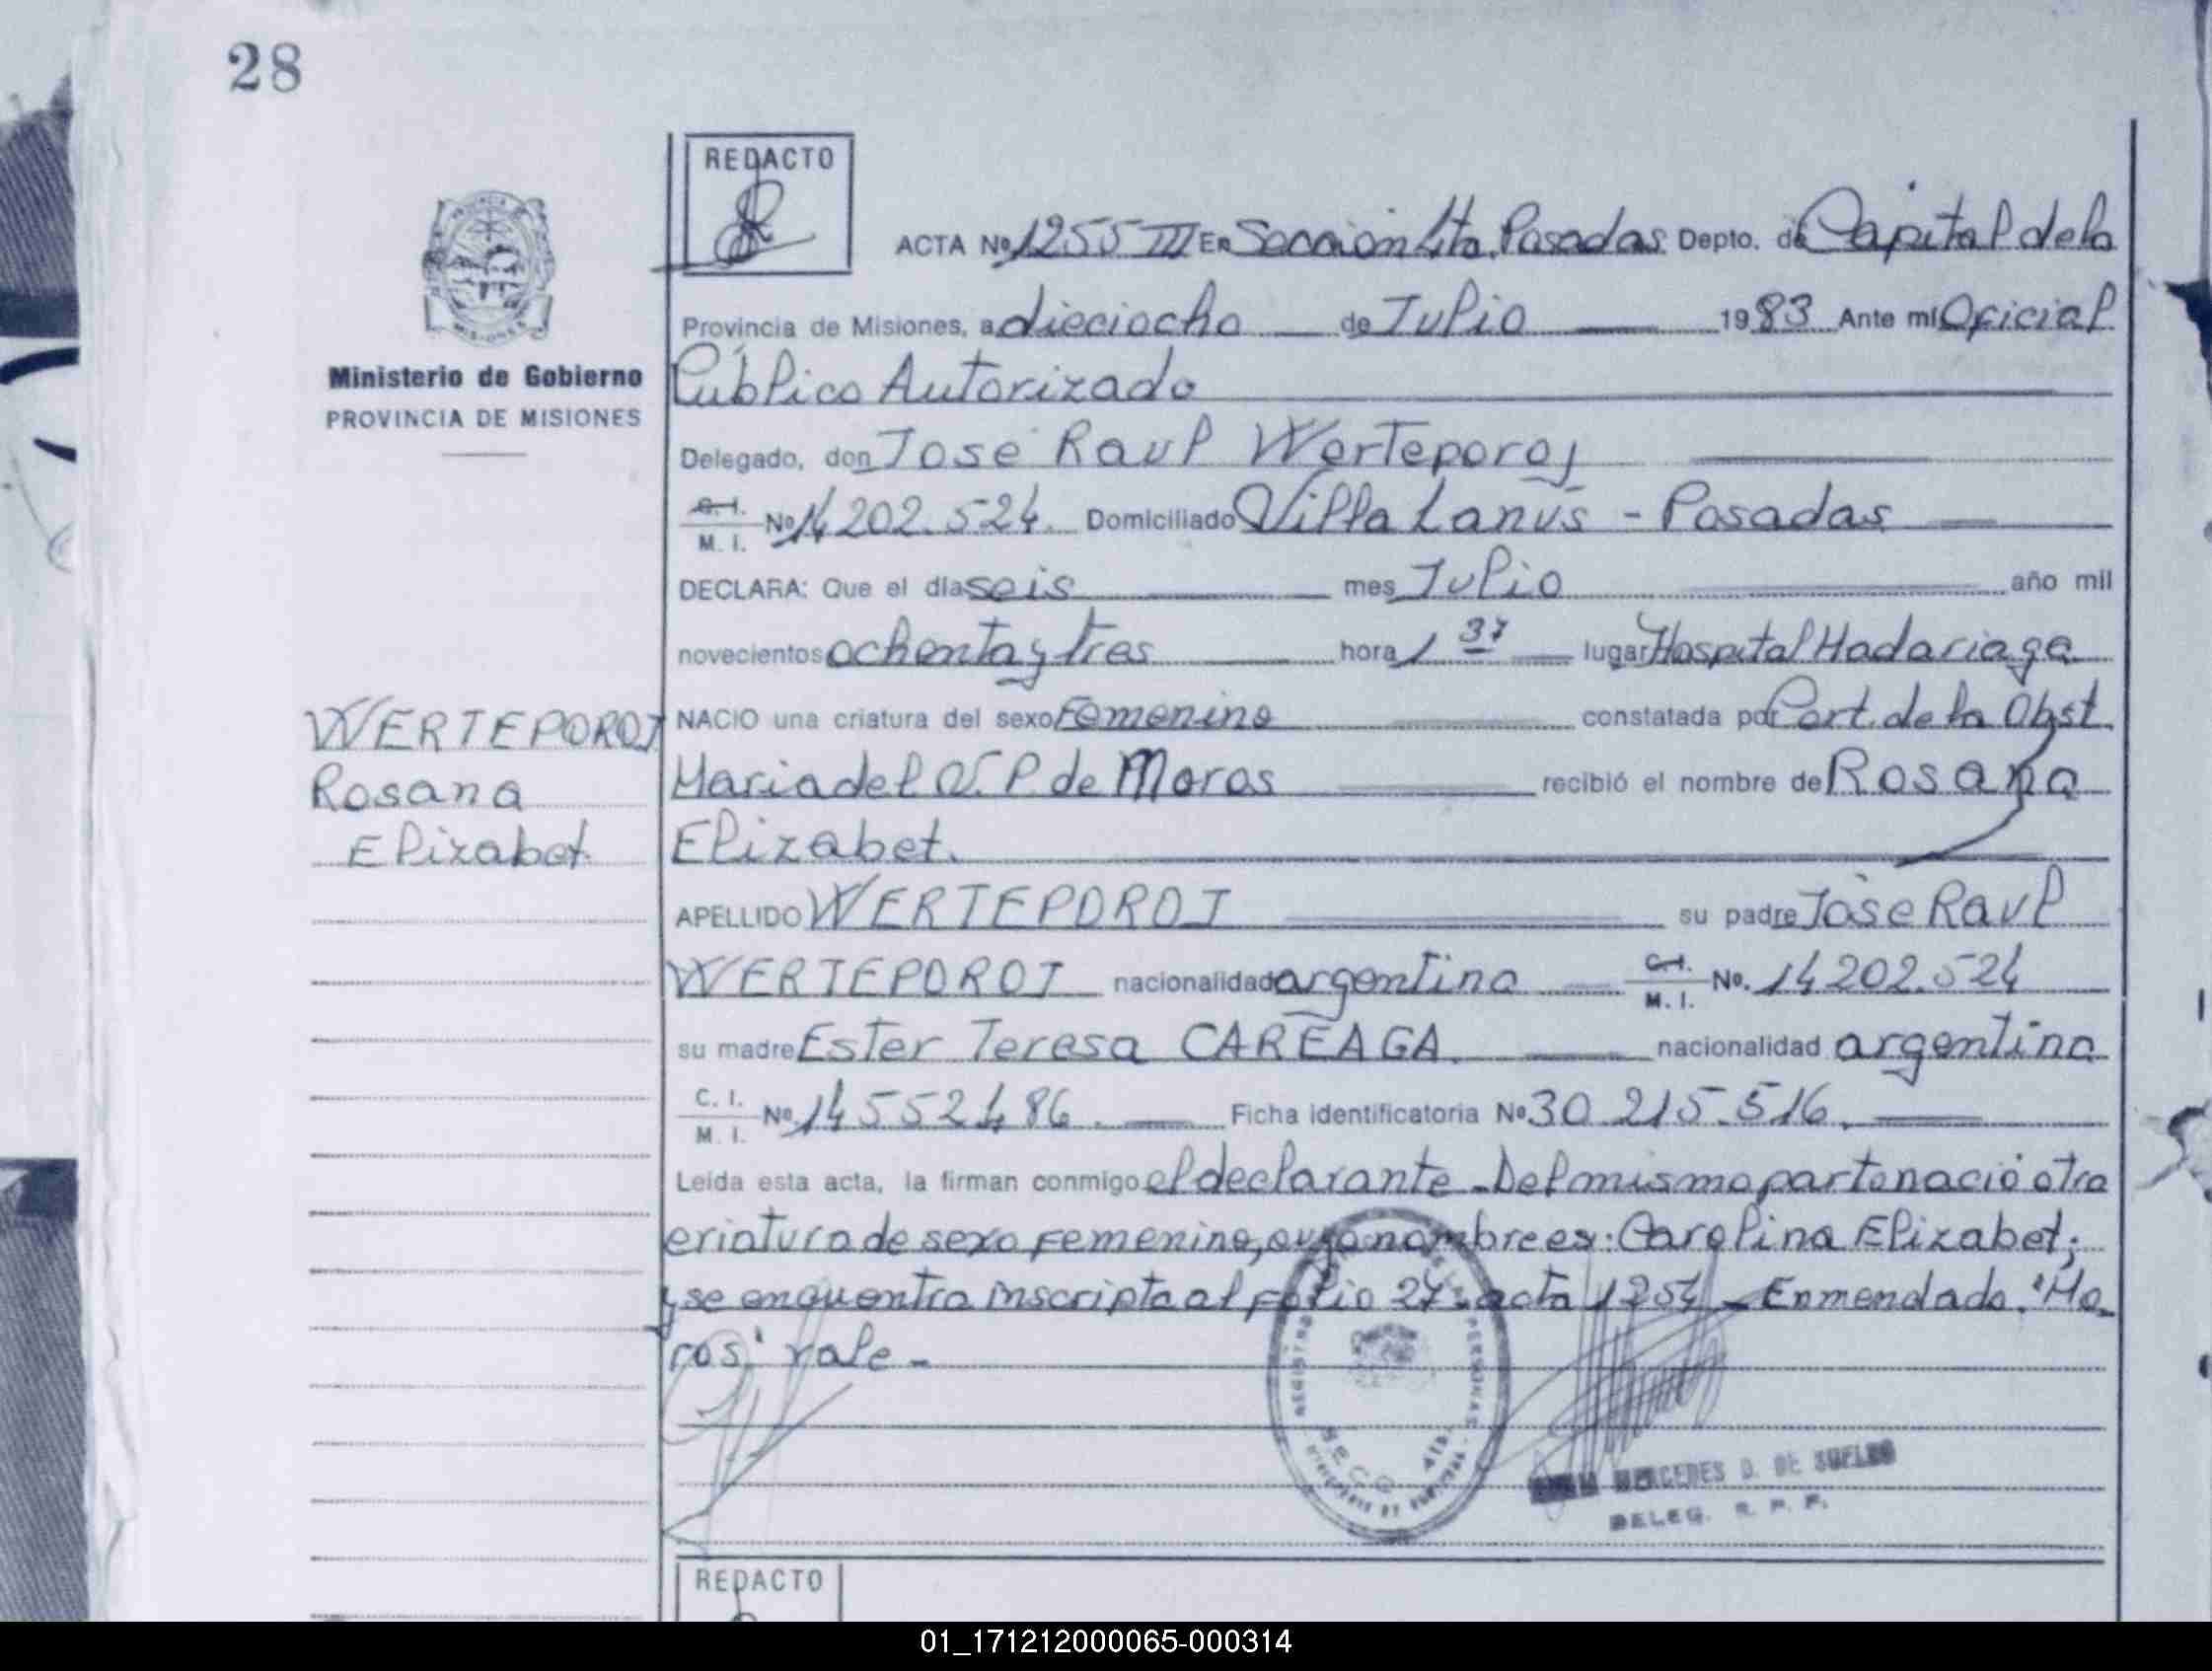 28
REDACTO
ACTA Nº 1255 III En Sección 4ta. Posadas Depto. de Capital de la
Provincia de Misiones, a dieciocho de Julio 1983 Ante mí Oficial
Ministerio de Gobierno
PROVINCIA DE MISIONES
Público Autorizado
Delegado, don José Raul Werteporoj
C. I. M. I. Nº 14 202.524. Domiciliado Villa Lanús - Posadas
DECLARA: Que el día seis mes Julio año mil
novecientos ochenta y tres hora 1 37 lugar Hospital Madariaga
WERTEPOROJ
Rosana
Elizabet
NACIO una criatura del sexo Femenino constatada por Cert. de la Obst
Maria del V. P. de Moros recibió el nombre de Rosana
Elizabet.
APELLIDO WERTEPOROJ su padre José Raul
WERTEPOROJ nacionalidad argentina C. I. M. I. No. 14 202.524
su madre Ester Teresa CAREAGA. nacionalidad argentina
C. I. M. I. Nº 14 552 486. Ficha identificatoria Nº 30 215.516.
Leída esta acta, la firman conmigo el declarante - Del mismo parto nació otra
criatura de sexo femenino, cuyo nombre es: Carolina Elizabet;
y se encuentra inscripta al folio 27 - acta 1254 - Enmendado. "Mo-
ros" vale -
REGISTRO PERSONAS
MERCEDES D. DE
DELEG. R. P. P.
REDACTO
01_171212000065-000314